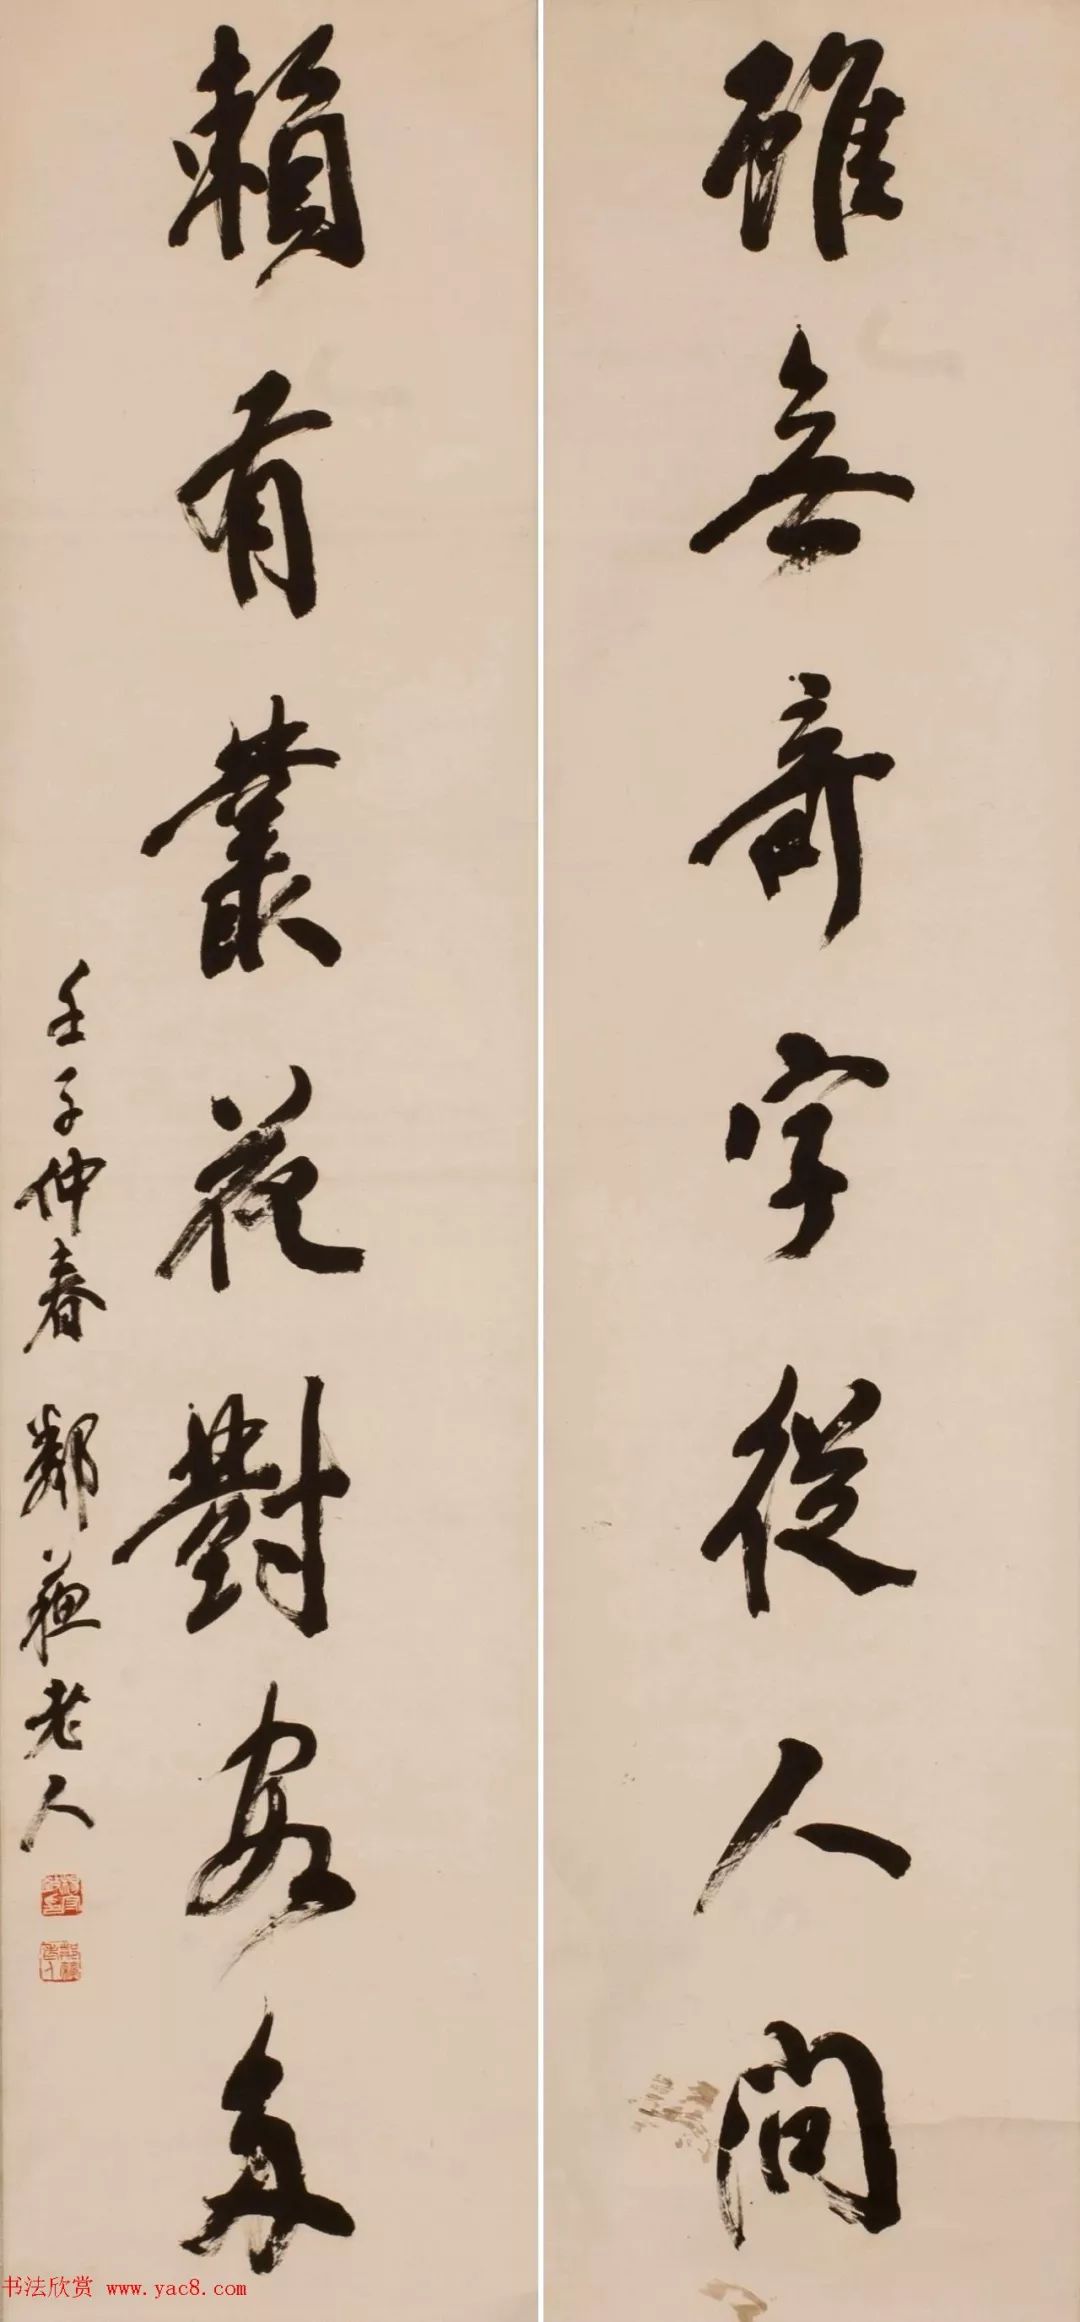 雖無奇字從人問
賴有叢花對客
壬子仲春 鄰蘇老人
书法欣赏 www.yac8.com